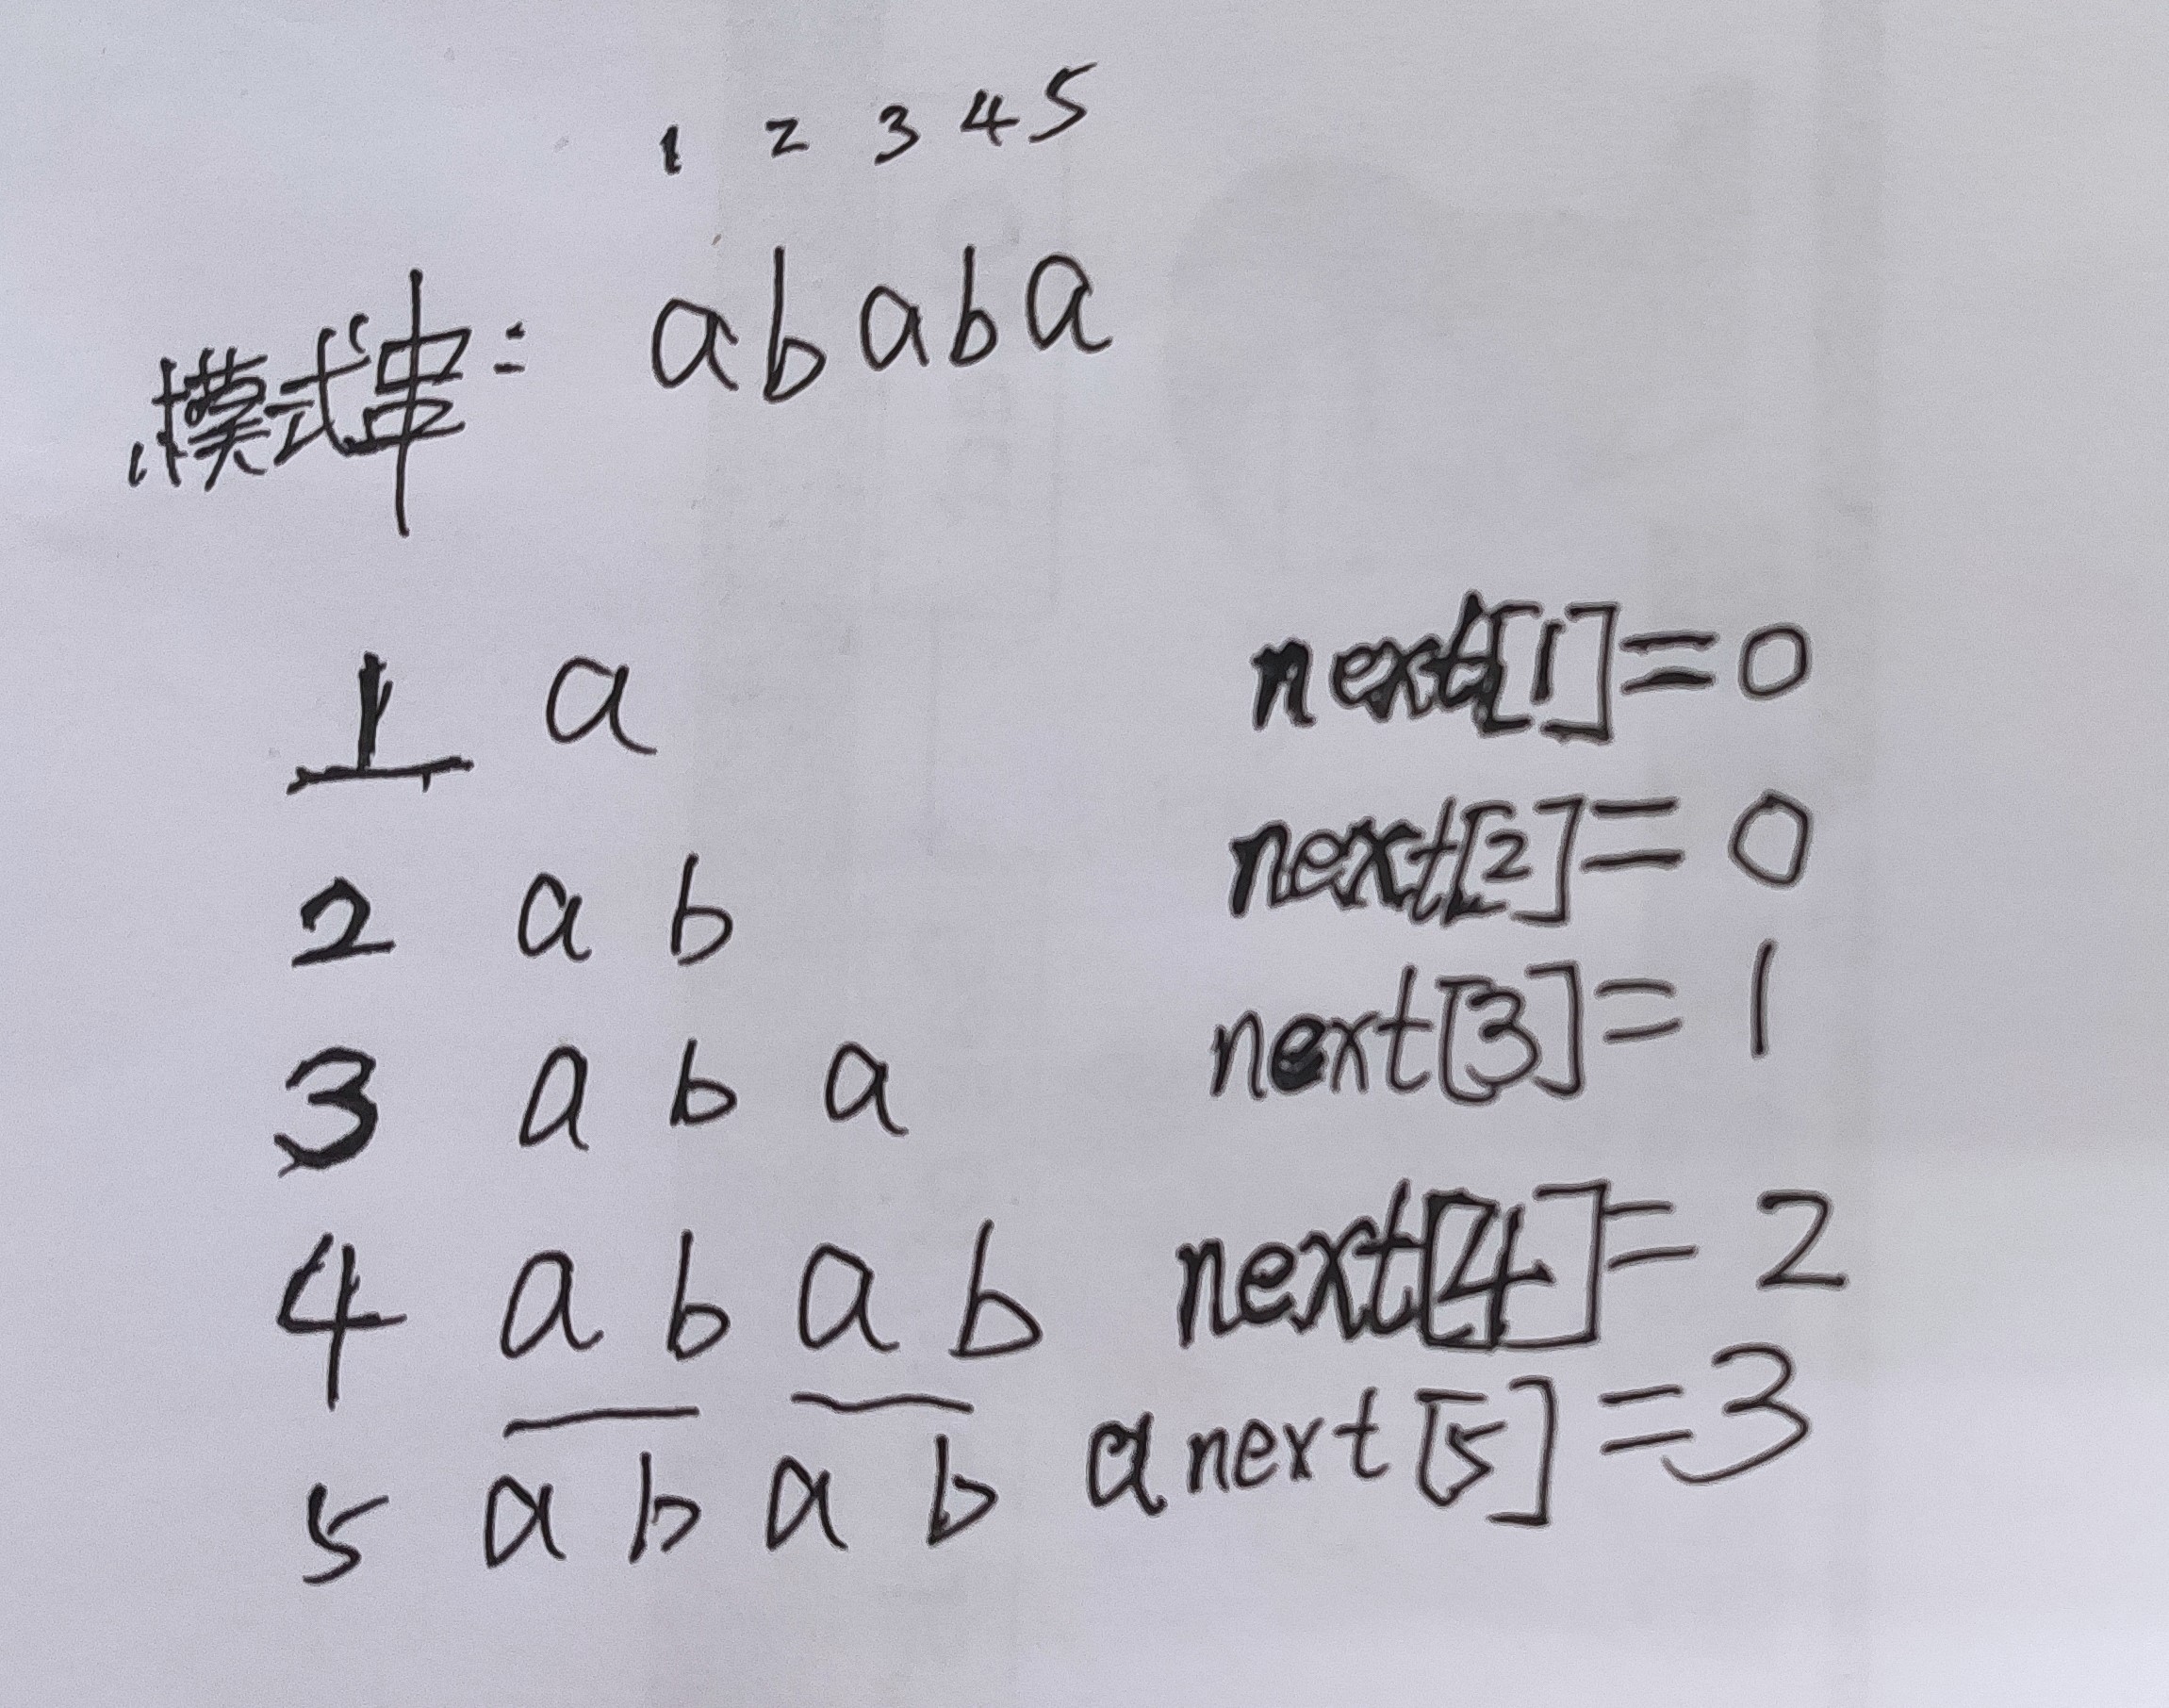 1 2 3 4 5
模式串: a b a b a
1 a next[1]=0
2 a b next[2]=0
3 a b a next[3]=1
4 a b a b next[4]=2
5 a b a b a next[5]=3